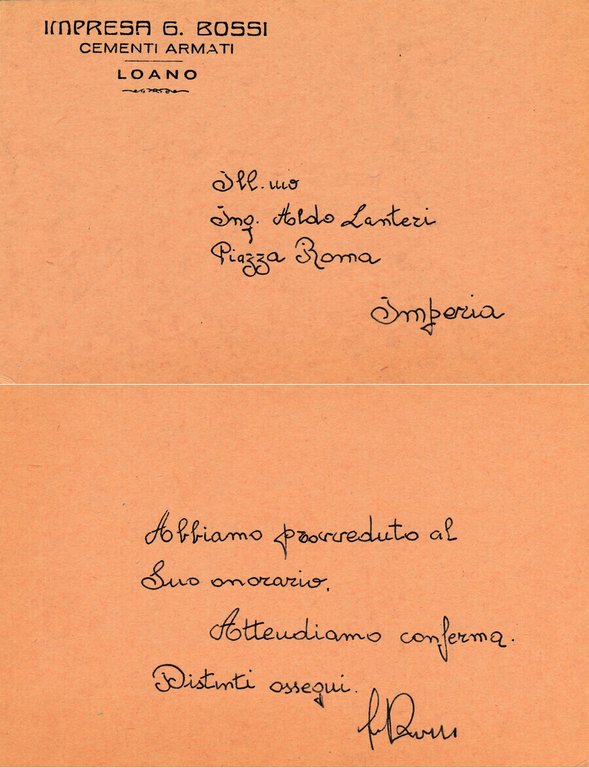 IMPRESA G. BOSSI
CEMENTI ARMATI
LOANO
Ill.mo
Ing. Aldo Lanteri
Piazza Roma
Imperia
Abbiamo provveduto al
Suo onorario.
Attendiamo conferma.
Distinti ossequi.